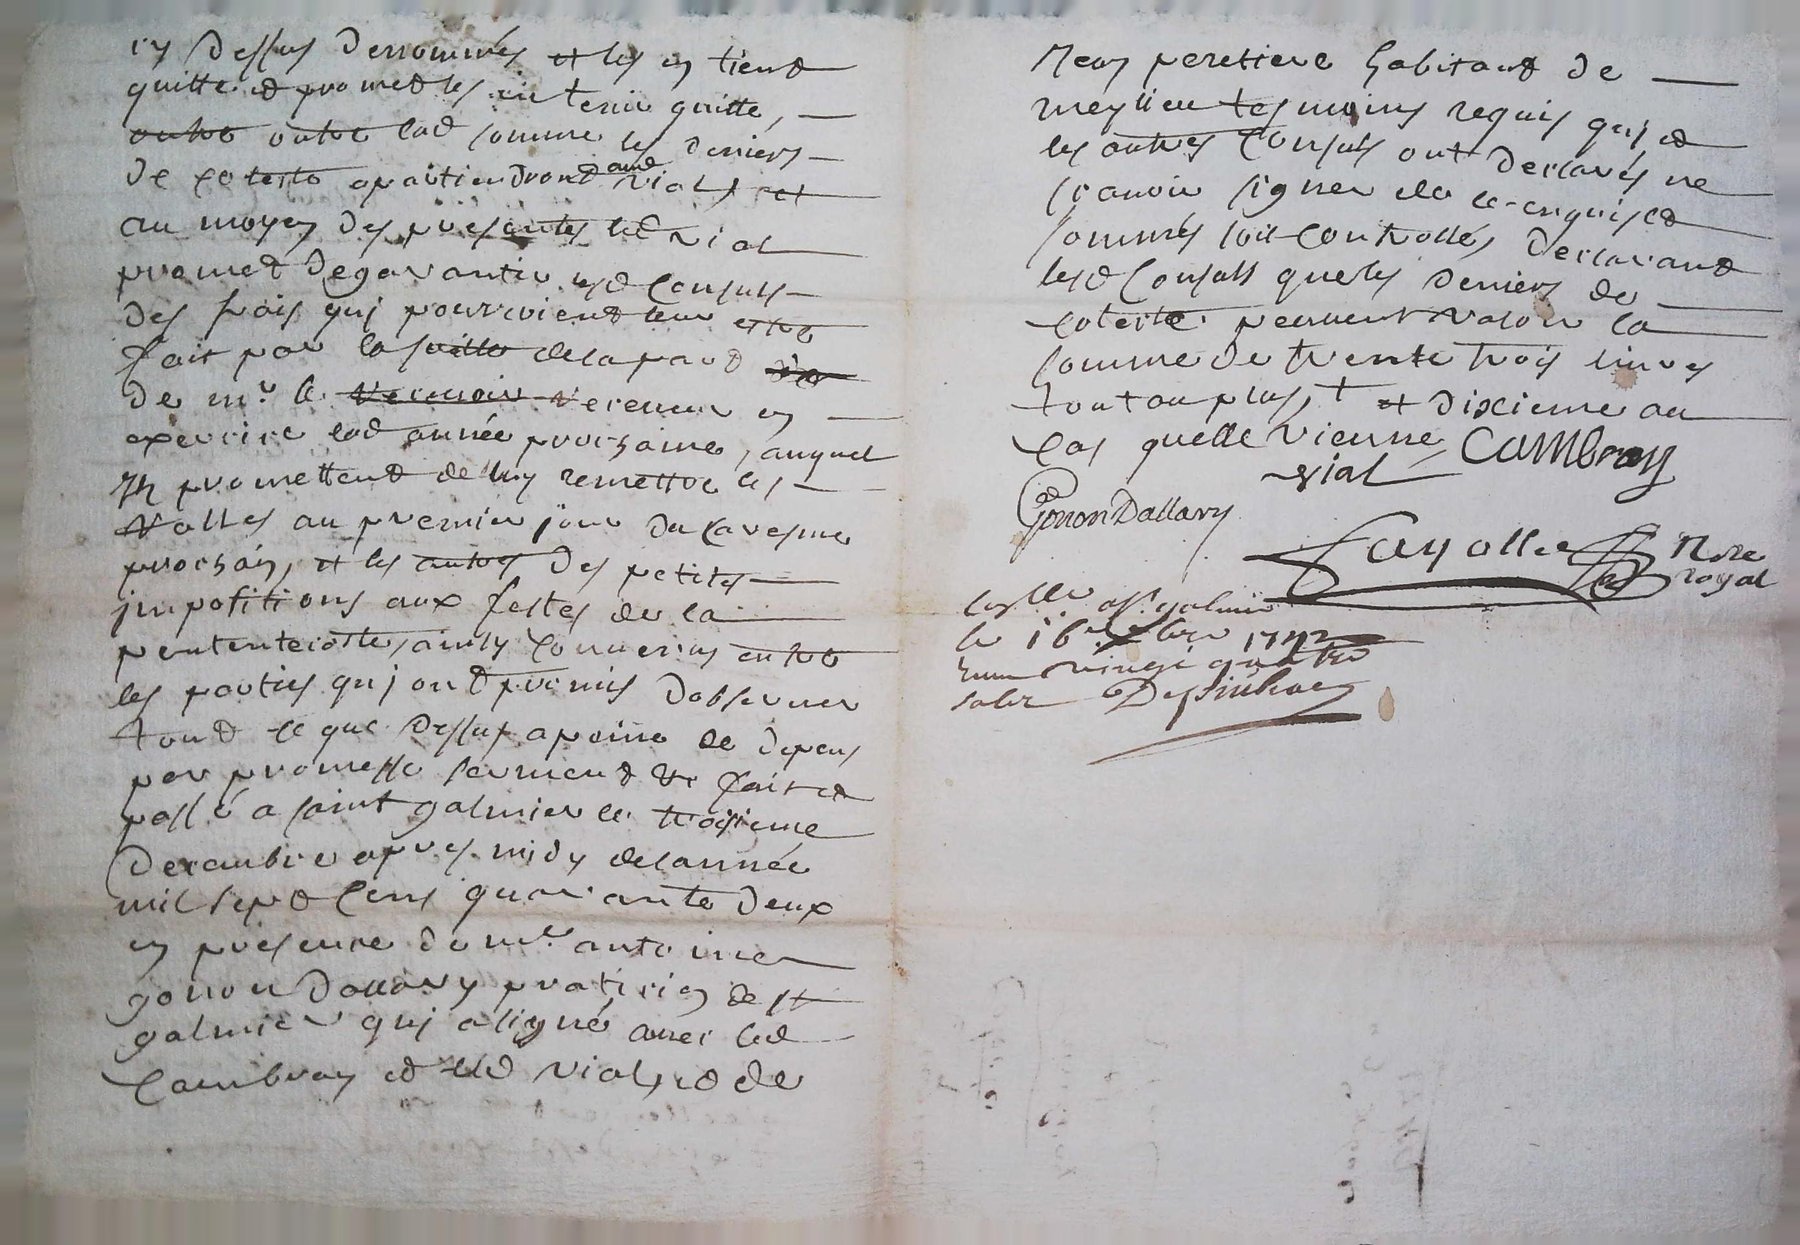 cy dessus denommés et les en tient
quitte et promet les en tenir quitte,
outre lad somme les deniers
de coteste apartiendront aud vial, et
au moyen des presentes led vial
promet degarantir lesd consuls
des frais quj pourroient leur estre
fait par la suitte dela part
de mr. le receveur en
exercice lad année prochaine, auquel
Ils promettent de luy remettre les
rolles au premier jour du caresme
prochain, et les autres des petites
jmpositions aux festes de la
pententeioste, ainsy convenus entre
les parties quj ont promis dobserver
tout ce que dessus apeine de depens
par promesse serment &c fait et
passé a saint galmier le troisieme
Decembre apres midy delannée
mil sept cens quarante deux
en presence de mr. antoine
gonon Dallary praticien de st
galmier quj asigné avec led
Cambray et led vial, et de
Jean peretiere habitant de
meylieu tesmoins requis quj et
les autres consuls ont declarés ne
scavoir signer de ce enquis et
sommés soit controllé, declarant
lesd consuls queles deniers de
coteste peuvent valoir la
somme de trente trois livres
tout au plus, et dixieme au
cas quelle vienne, Cambray
vial
Gonon Dallary
Fayolle Nore
royal
a st. galmier
le 16e xbre 1742
vingt quatre
solz